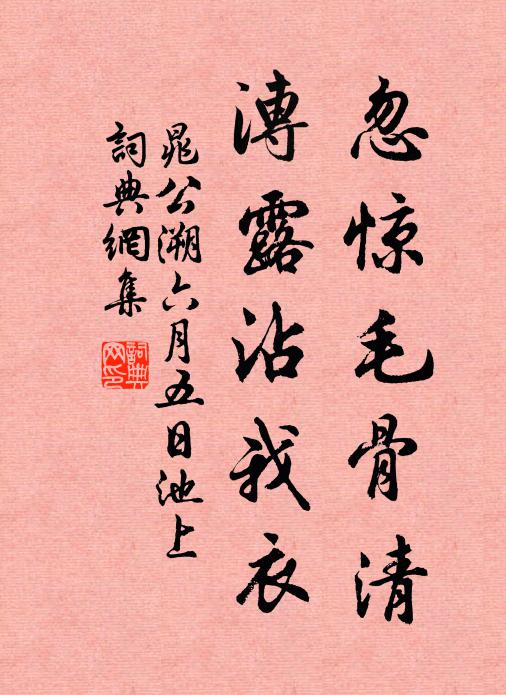 忽惊毛骨清
漙露沾我衣
晁公溯六月五日池上
詞典網集
詞典網印